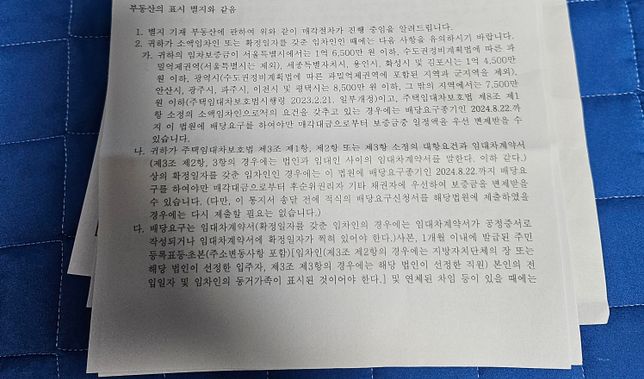 부동산의 표시 별지와 같음
1. 별지 기재 부동산에 관하여 위와 같이 매각절차가 진행 중임을 알려드립니다.
2. 귀하가 소액임차인 또는 확정일자를 갖춘 임차인인 때에는 다음 사항을 유의하시기 바랍니다.
가. 귀하의 임차보증금이 서울특별시에서는 1억 6,500만 원 이하, 수도권정비계획법에 따른 과
밀억제권역(서울특별시는 제외), 세종특별자치시, 용인시, 화성시 및 김포시는 1억 4,500만
원 이하, 광역시(수도권정비계획법에 따른 과밀억제권역에 포함된 지역과 군지역을 제외),
안산시, 광주시, 파주시, 이천시 및 평택시는 8,500만 원 이하, 그 밖의 지역에서는 7,500만
원 이하(주택임대차보호법시행령 2023.2.21. 일부개정)이고, 주택임대차보호법 제8조 제1
항 소정의 소액임차인으로서의 요건을 갖추고 있는 경우에는 배당요구종기인 2024.8.22.까
지 이 법원에 배당요구를 하여야만 매각대금으로부터 보증금중 일정액을 우선 변제받을 수
있습니다.
나. 귀하가 주택임대차보호법 제3조 제1항, 제2항 또는 제3항 소정의 대항요건과 임대차계약서
(제3조 제2항, 3항의 경우에는 법인과 임대인 사이의 임대차계약서를 말한다. 이하 같다.)
상의 확정일자를 갖춘 임차인인 경우에는 이 법원에 배당요구종기인 2024.8.22.까지 배당요
구를 하여야만 매각대금으로부터 후순위권리자 기타 채권자에 우선하여 보증금을 변제받을
수 있습니다. (다만, 이 통지서 송달 전에 적식의 배당요구신청서를 해당법원에 제출하였을
경우에는 다시 제출할 필요는 없습니다.)
다. 배당요구는 임대차계약서(확정일자를 갖춘 임차인의 경우에는 임대차계약서가 공정증서로
작성되거나 임대차계약서에 확정일자가 찍혀 있어야 한다.)사본, 1개월 이내에 발급된 주민
등록표등·초본(주소변동사항 포함)[임차인(제3조 제2항의 경우에는 지방자치단체의 장 또는
해당 법인이 선정한 입주자, 제3조 제3항의 경우에는 해당 법인이 선정한 직원) 본인의 전
입일자 및 임차인의 동거가족이 표시된 것이어야 한다.] 및 연체된 차임 등이 있을 때에는